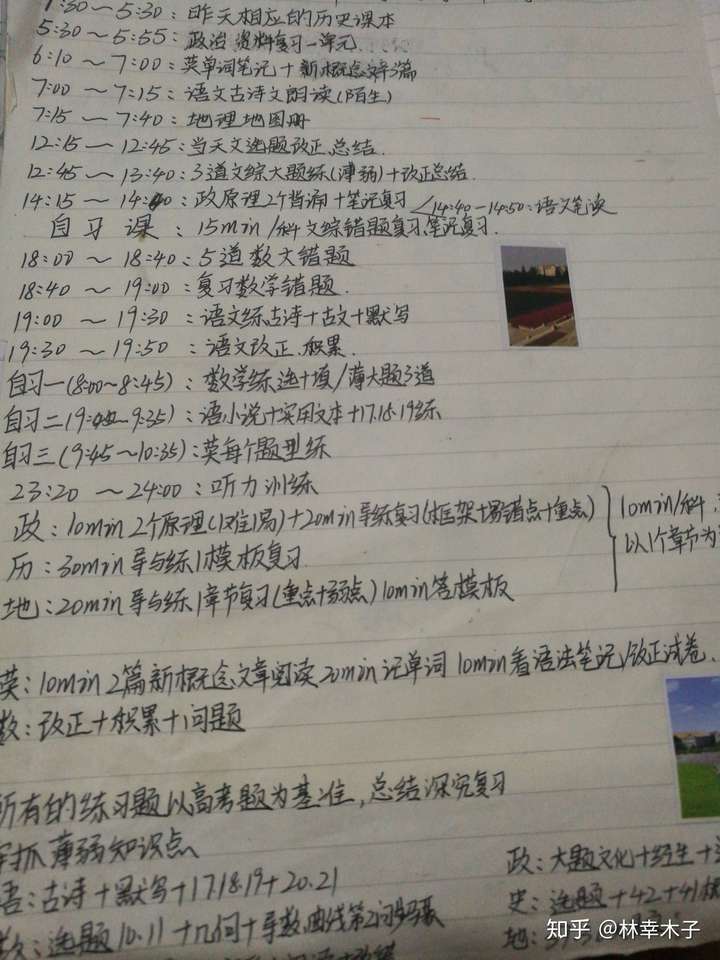 :30～5:30：昨天相应的历史课本
5:30～5:55：政治 资料复习一单元.
6:10～7:00：英单词笔记+新概念文章3篇
7:00～7:15：语文古诗文朗读(陌生)
7:15～7:40：地理地图册
12:15～12:45：当天文选题改正.总结.
12:45～13:40：3道文综大题练(薄弱)+改正总结.
14:15～14:40：政原理2个背诵+笔记复习<14:40-14:50：语文笔读
自习课：15min/科 文综错题复习.笔记复习.
18:00～18:40：5道数大错题
18:40～19:00：复习数学错题.
19:00～19:30：语文练古诗+古文+默写
19:30～19:50：语文改正.积累.
自习一(8:00~8:45)：数学练选+填/薄大题3道
自习二(9:~9:35)：语小说+实用文本+17.18.19练
自习三(9:45~10:35)：英每个题型练
23:20～24:00：听力训练
政：10min 2个原理(1难1易)+20min导练复习(框架+易错点+重点)
10min/科,
历：30min导与练1模板复习.
以1个章节为
地：20min导与练1章节复习(重点+弱点)10min答模板
英：10min 2篇新概念文章阅读 20min记单词 10min看语法笔记/改正试卷.
数：改正+积累+1问题
所有的练习题以高考题为基准,总结深究复习
抓薄弱知识点
语：古诗+默写+17.18.19+20.21
政：大题文化+经生+
数：选题10.11+几何+导数,曲线第2问
史：选题+42+41
地：
知乎 @林幸木子